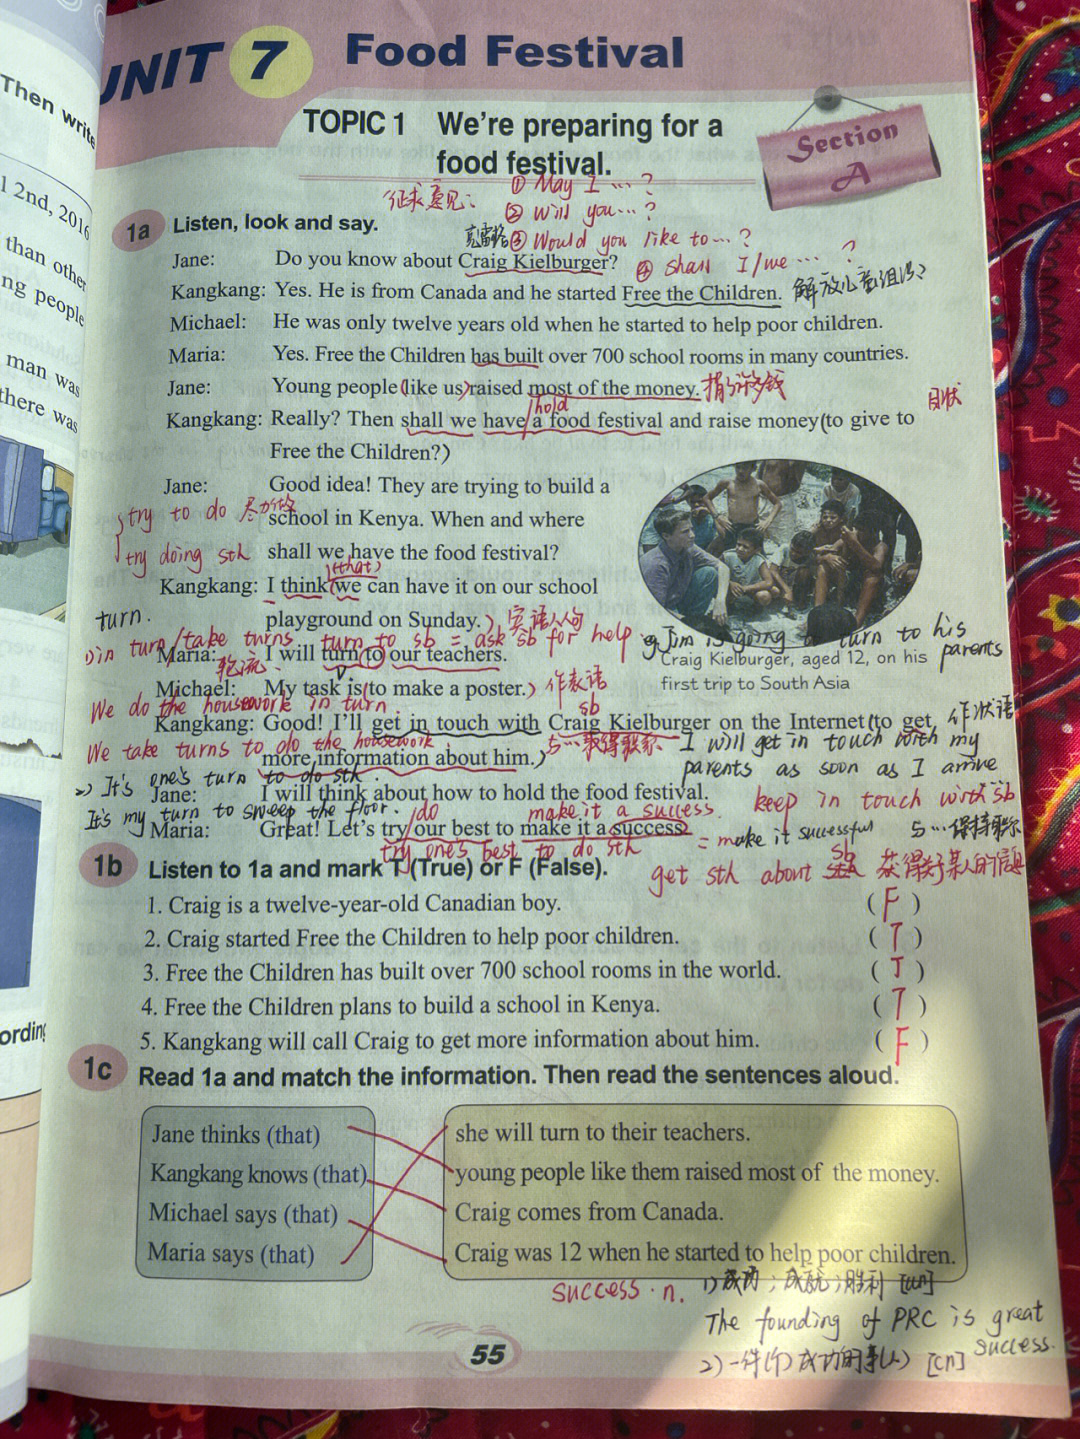 Then write
l 2nd, 2016
than other
ng people
man was
there was
ording
UNIT 7 Food Festival
TOPIC 1 We're preparing for a
food festival.
Section
A
征求意见: ① May I …?
② Will you…?
③ Would you like to…?
④ Shall I/we … ?
1a Listen, look and say.
克雷格
Jane: Do you know about Craig Kielburger?
Kangkang: Yes. He is from Canada and he started Free the Children. 解放儿童组织
Michael: He was only twelve years old when he started to help poor children.
Maria: Yes. Free the Children has built over 700 school rooms in many countries.
Jane: Young people (like us) raised most of the money.
hold
目状
Kangkang: Really? Then shall we have/a food festival and raise money(to give to
Free the Children?)
Jane: Good idea! They are trying to build a
try to do 尽力做
school in Kenya. When and where
try doing sth
shall we have the food festival?
(that)
Kangkang: I think we can have it on our school
turn.
playground on Sunday.) 宾语从句
1)in turn/take turns turn to sb = ask sb for help
eg Jim is going to turn to his
parents
轮流
Maria: I will turn to our teachers.
Craig Kielburger, aged 12, on his
first trip to South Asia
Michael: My task is(to make a poster.) 作表语
We do the housework in turn.
sb
Kangkang: Good! I'll get in touch with Craig Kielburger on the Internet(to get 作状语
We take turns to do the housework
more information about him.)
与…取得联系
I will get in touch with my
parents as soon as I arrive
2) It's one's turn to do sth.
Jane: I will think about how to hold the food festival.
It's my turn to sweep the floor.
do make it a success. keep in touch with sb
与…保持联系
Maria: Great! Let's try our best to make it a success = make it successful
try one's best to do sth
get sth about sb 获得关于某人的信息
1b Listen to 1a and mark T (True) or F (False).
1. Craig is a twelve-year-old Canadian boy. ( F )
2. Craig started Free the Children to help poor children. ( T )
3. Free the Children has built over 700 school rooms in the world. ( T )
4. Free the Children plans to build a school in Kenya. ( T )
5. Kangkang will call Craig to get more information about him. ( F )
1c Read 1a and match the information. Then read the sentences aloud.
Jane thinks (that) she will turn to their teachers.
Kangkang knows (that) young people like them raised most of the money.
Michael says (that) Craig comes from Canada.
Maria says (that) Craig was 12 when he started to help poor children.
success · n. 1)成功;成就;胜利 [un]
The founding of PRC is great
success.
2)一件(个)成功的事(人) [cn]
55